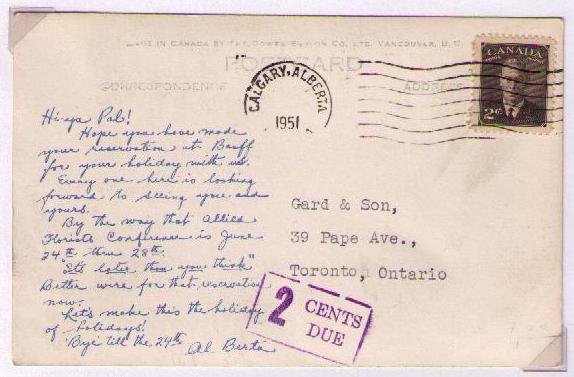 MADE IN CANADA BY THE GOWEN SUTTON CO. LTD. VANCOUVER, B.C.
POST CARD
CORRESPONDENCE
ADDRESS
CALGARY, ALBERTA
1951
CANADA
2¢
Hi-ya Pal!
Hope you have made
your reservation at Banff
for your holiday with us.
Every one here is looking
forward to seeing you and
yours.
By the way that Allied
Florists Conference is June
24th thru 28th.
"It's later than you think"
Better wire for that reservation
now.
Let's make this the holiday
of holidays!
'Bye till the 24th
Al Berta
Gard & Son,
39 Pape Ave.,
Toronto, Ontario
2 CENTS
DUE